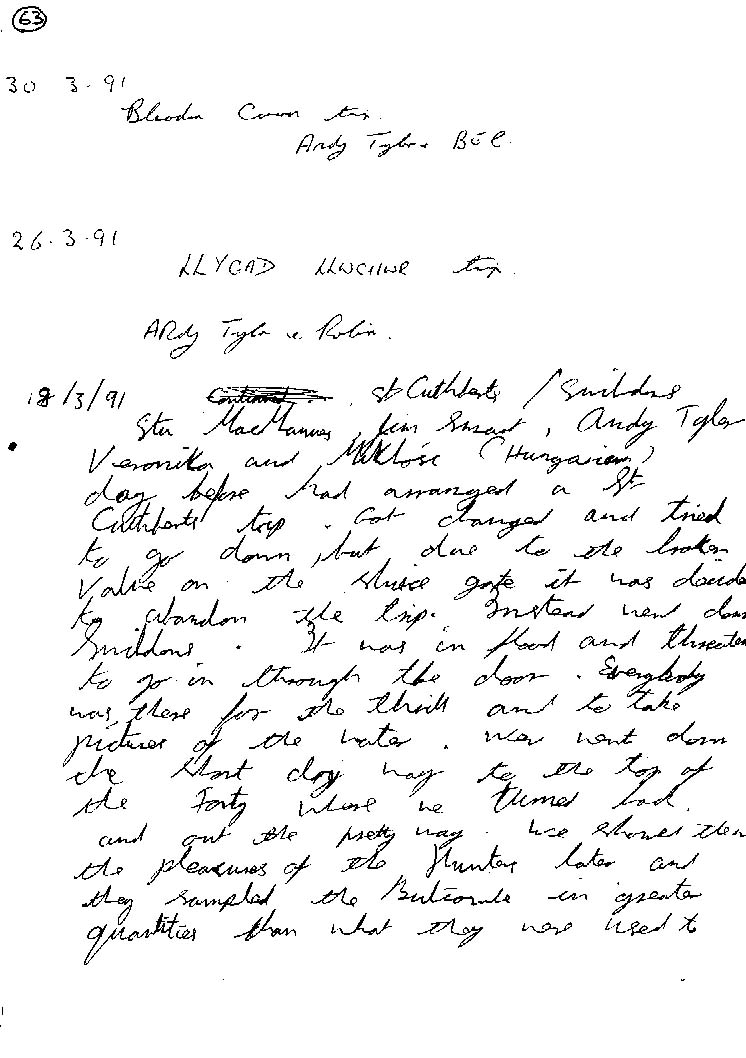 63
30 3.91
Bleadon Cavern trip.
Andy Tyler + BEC.
26.3.91
LLYGAD LLWCHWR trip.
ANdy Tyler + Robin.
18/3/91 St Cuthberts / Swildons
Stu MacManus, Jim Smart, Andy Tyler
Veronika and Miklós (Hungarian)
day before had arranged a St
Cuthberts trip. Got changed and tried
to go down, but due to the broken
Valve on the sluice gate it was decide
to abandon the trip. Instead went down
Swildons. It was in flood and threaten
to go in through the door. Everybody
was there for the thrill and to take
pictures of the water. went down
the short dry way to the top of
the Forty where we turned back
and out the pretty way. We showed them
the pleasures of the Hunters later and
they sampled the Butcombe in greater
quantities than what they were used to